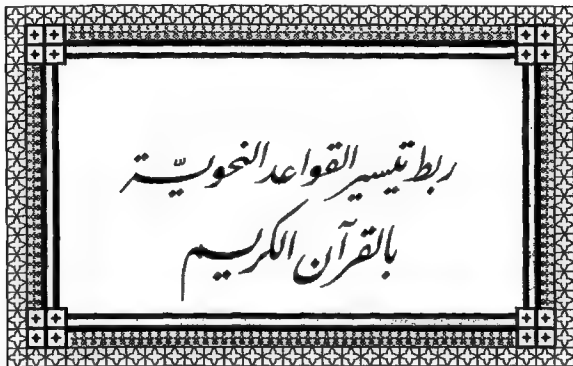 ربط تيسير القواعد النحويّة
بالقرآن الكريم